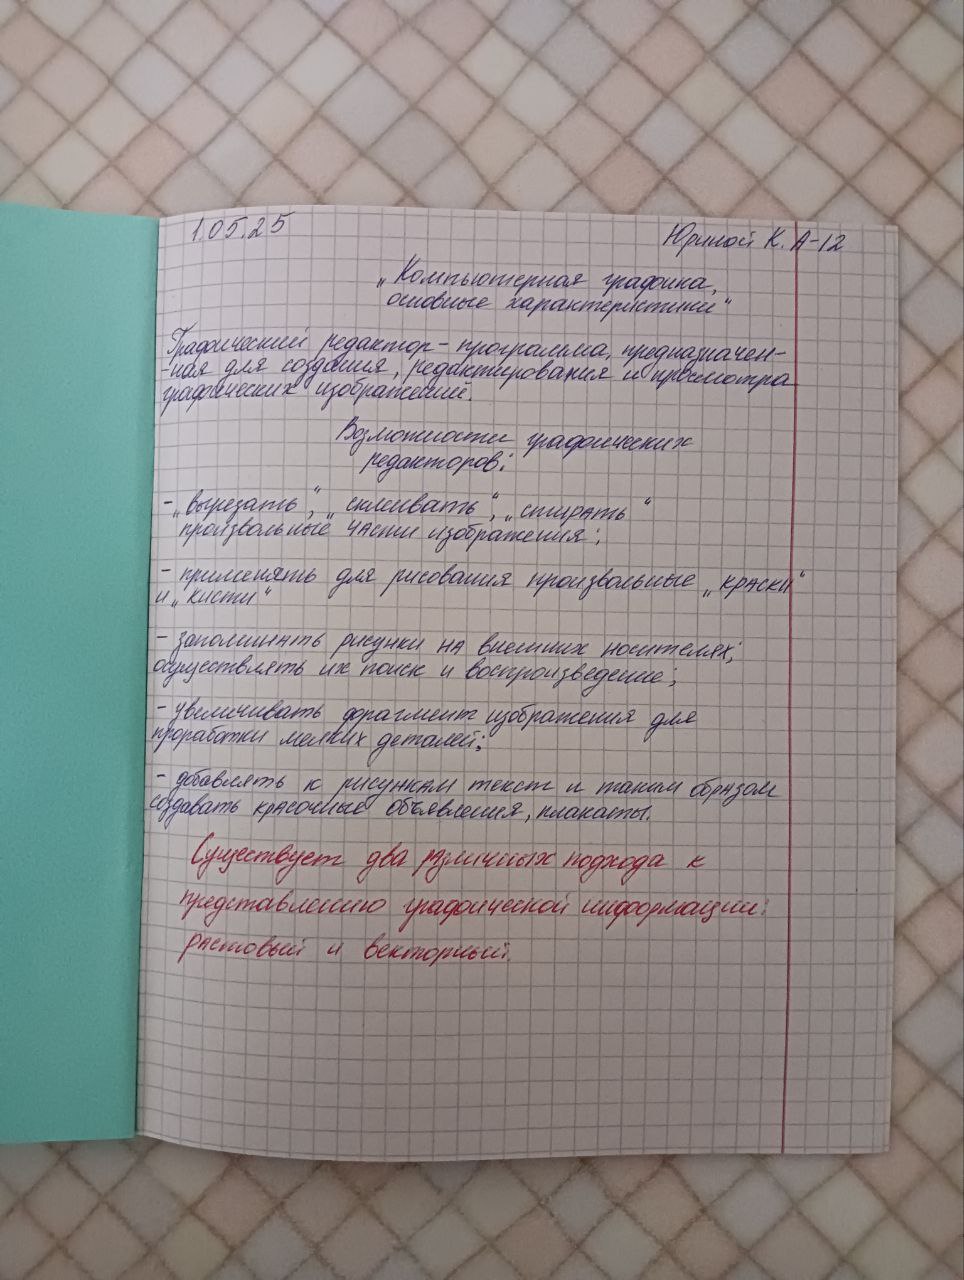 1.05.25
Юрилой К. А-12
„Компьютерная графика,
основные характеристики“
Графический редактор - программа, предназначен-
-ная для создания, редактирования и просмотра
графических изображений.
Возможности графических
редакторов:
- „вырезать“, „склеивать“, „стирать“
произвольные части изображения;
- применять для рисования произвольные „краски“
и „кисти“
- запоминать рисунки на внешних носителях;
осуществлять их поиск и воспроизведение;
- увеличивать фрагмент изображения для
проработки мелких деталей;
- добавлять к рисункам текст и таким образом
создавать красочные объявления, плакаты.
Существует два различных подхода к
представлению графической информации:
растовый и векторный.